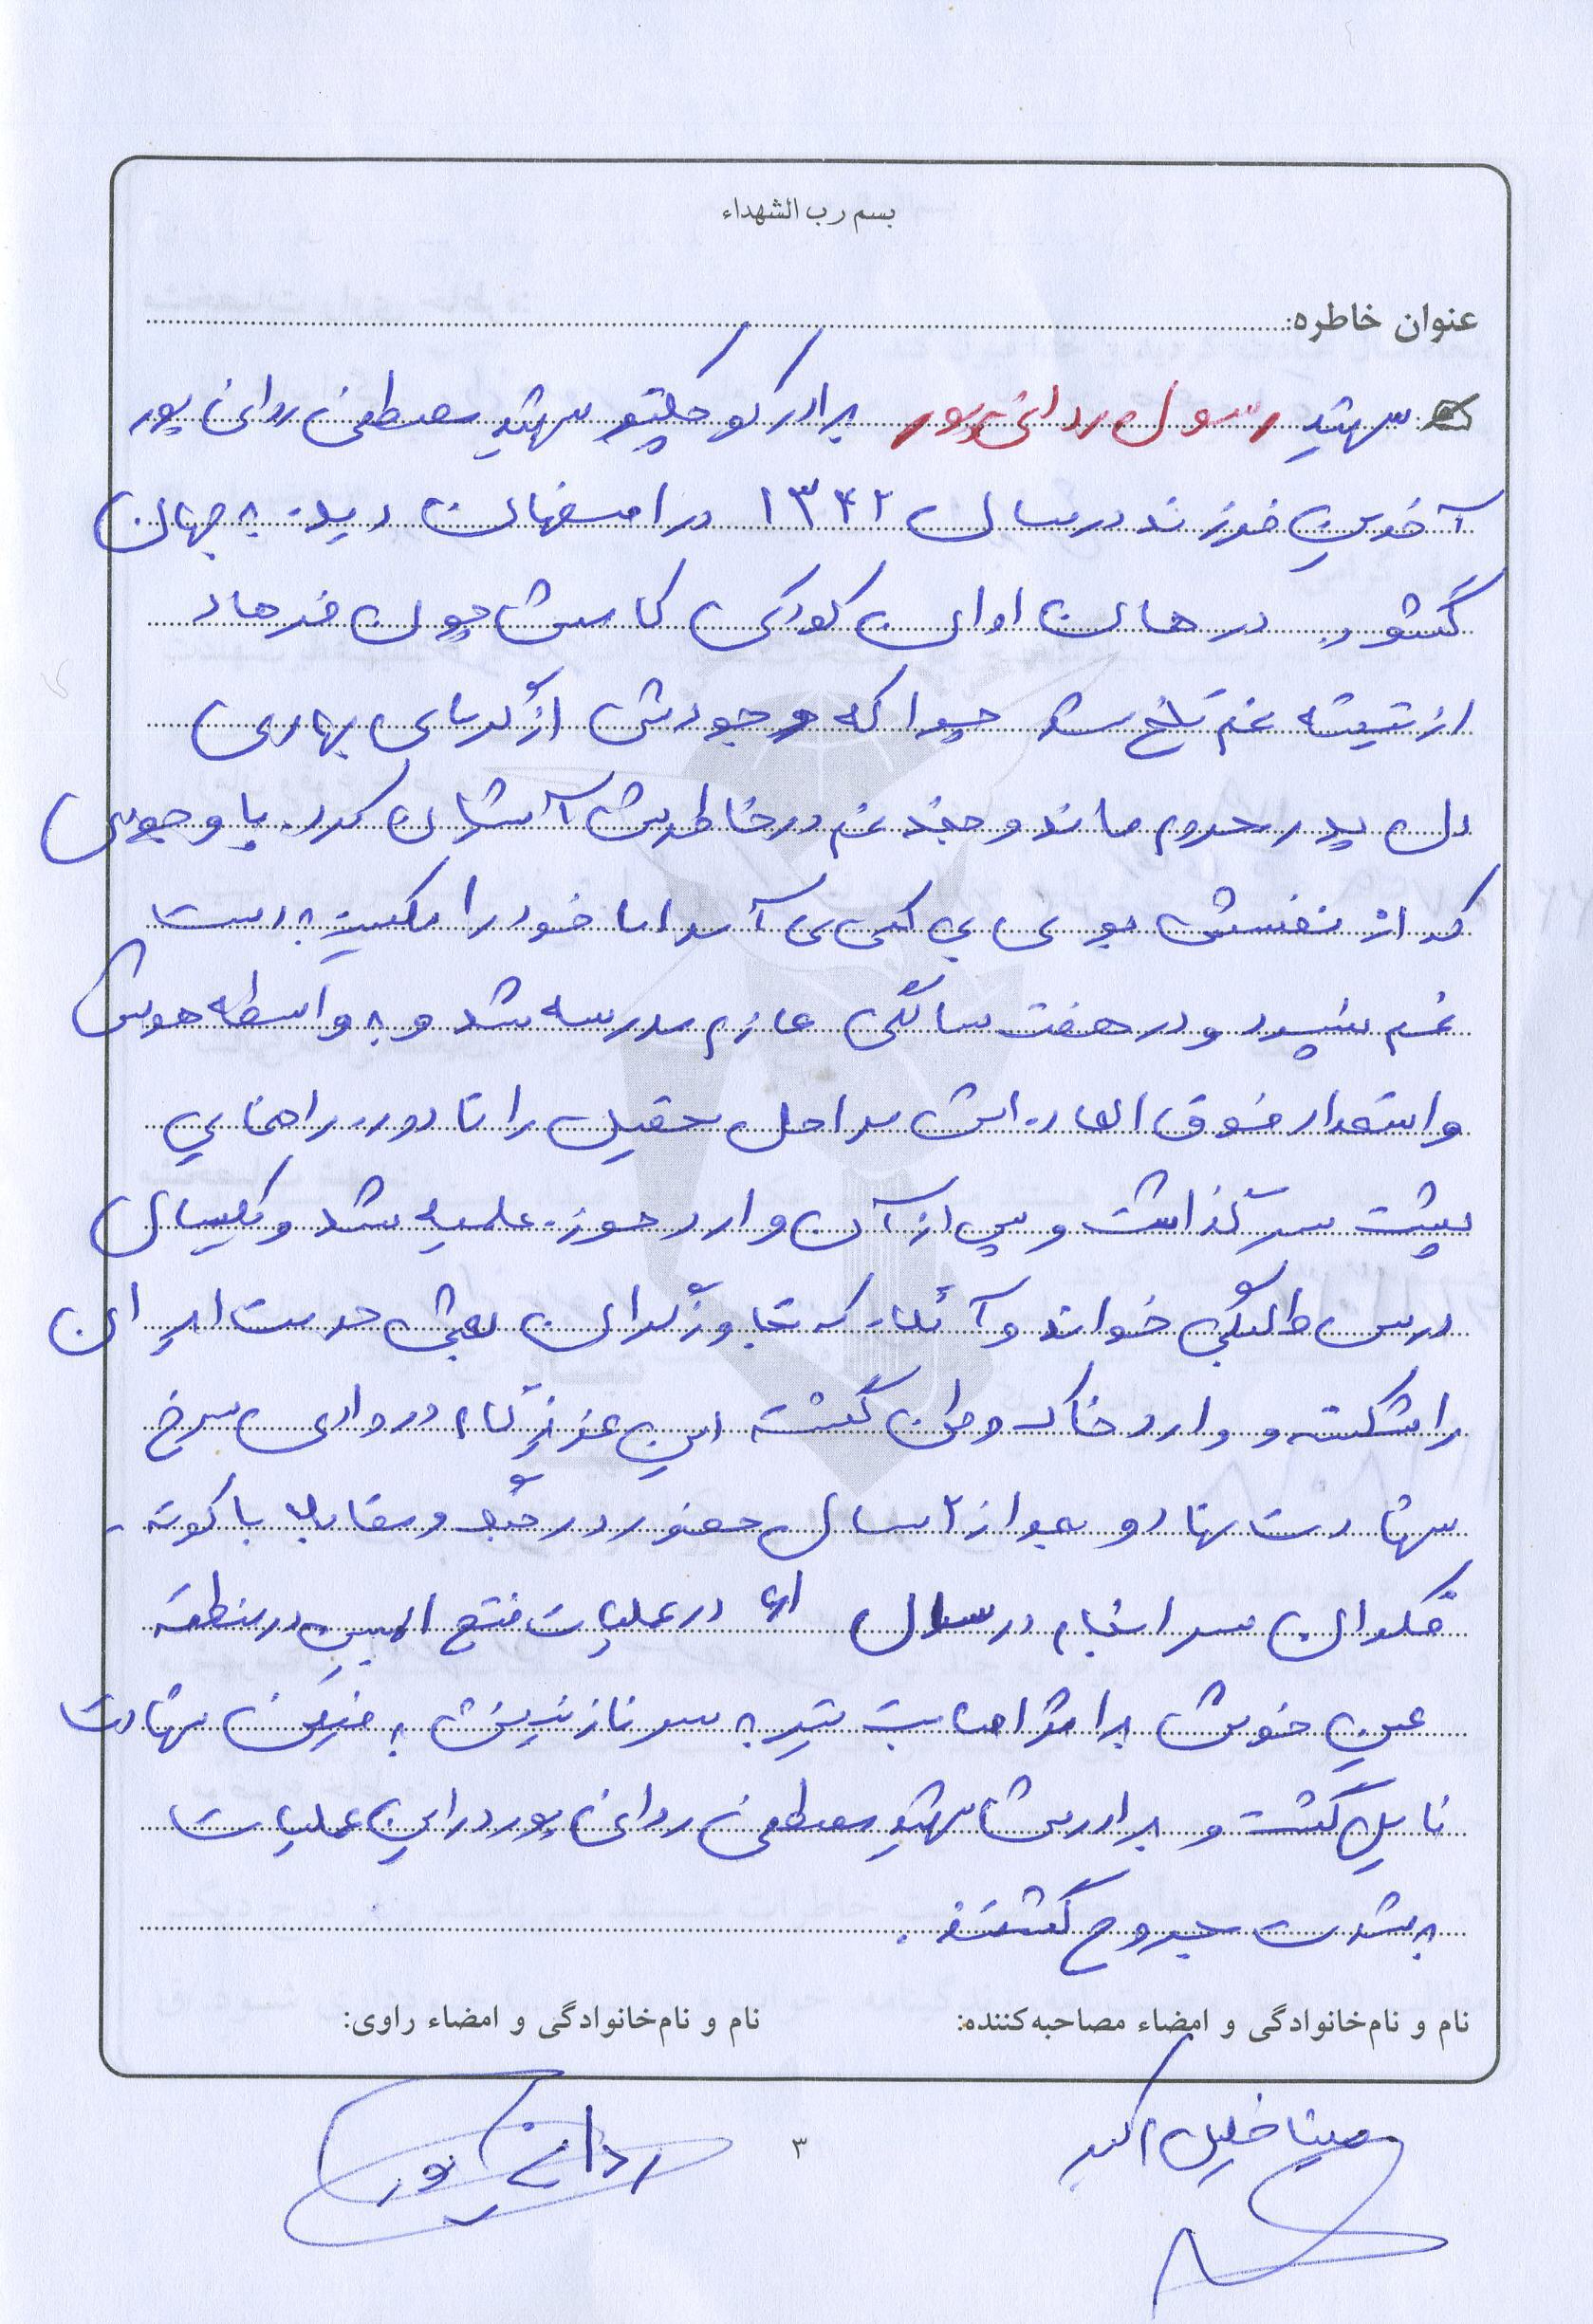 بسم رب الشهداء
عنوان خاطره:
شهید رسول ردانی پور برادر کوچکتر شهید مصطفی ردانی پور
آخرین فرزند در سال ۱۳۴۲ در اصفهان دیده به جهان
گشود. در همان اوان کودکی کامش چون فرهاد
از تیشه غم تلخ شد چرا که وجودش از گرمای بهاری
دل پدر محروم ماند و جغد غم در خاطرش آشیان کرد. با وجودی
که از نفسش بوی بی کسی می آمد اما خود را نه
غم سپرد و در هفت سالگی عازم مدرسه شد و به واسطه هوش
و استعداد فوق العاده اش مراحل تحصیل را تا دوره راهنمایی
پشت سر گذاشت و پس از آن وارد حوزه علمیه شد و یکسال
درس طلبگی خواند و آنگاه که تجاوزگران بعثی حرمت ایران
را شکسته و وارد خاک وطن گشته این عزیز گام در وادی سرخ
شهادت نهاد و بعد از ۲ سال حضور در جبهه و مقابله با کوته
فکران سرانجام در سال ۶۱ در عملیات فتح المبین در منطقه
عین خوش بر اثر اصابت تیر به سر نازنینش به فیض شهادت
نایل گشت و برادرش شهید مصطفی ردانی پور در این عملیات
به شدت مجروح گشتند.
نام و نام‌خانوادگی و امضاء مصاحبه‌کننده:
نام و نام‌خانوادگی و امضاء راوی:
مینا خلیل اکبر
ردانی پور
۳